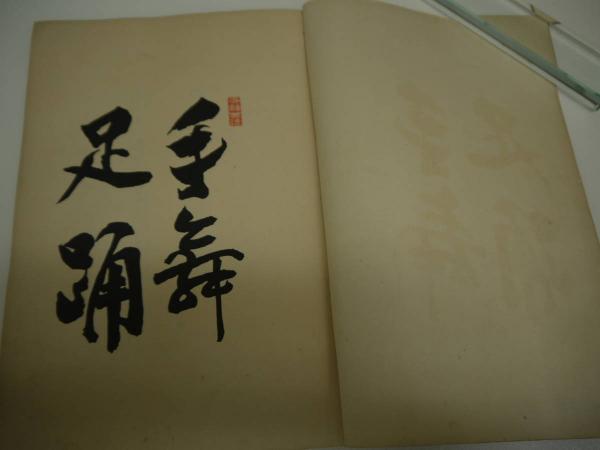 手舞
足踊